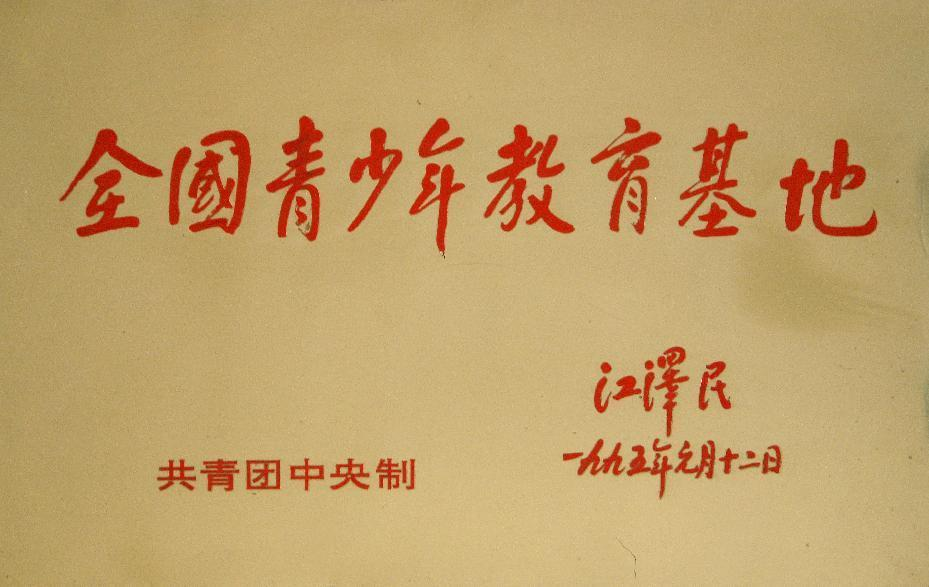 全國青少年教育基地
江澤民
一九九五年元月十二日
共青团中央制